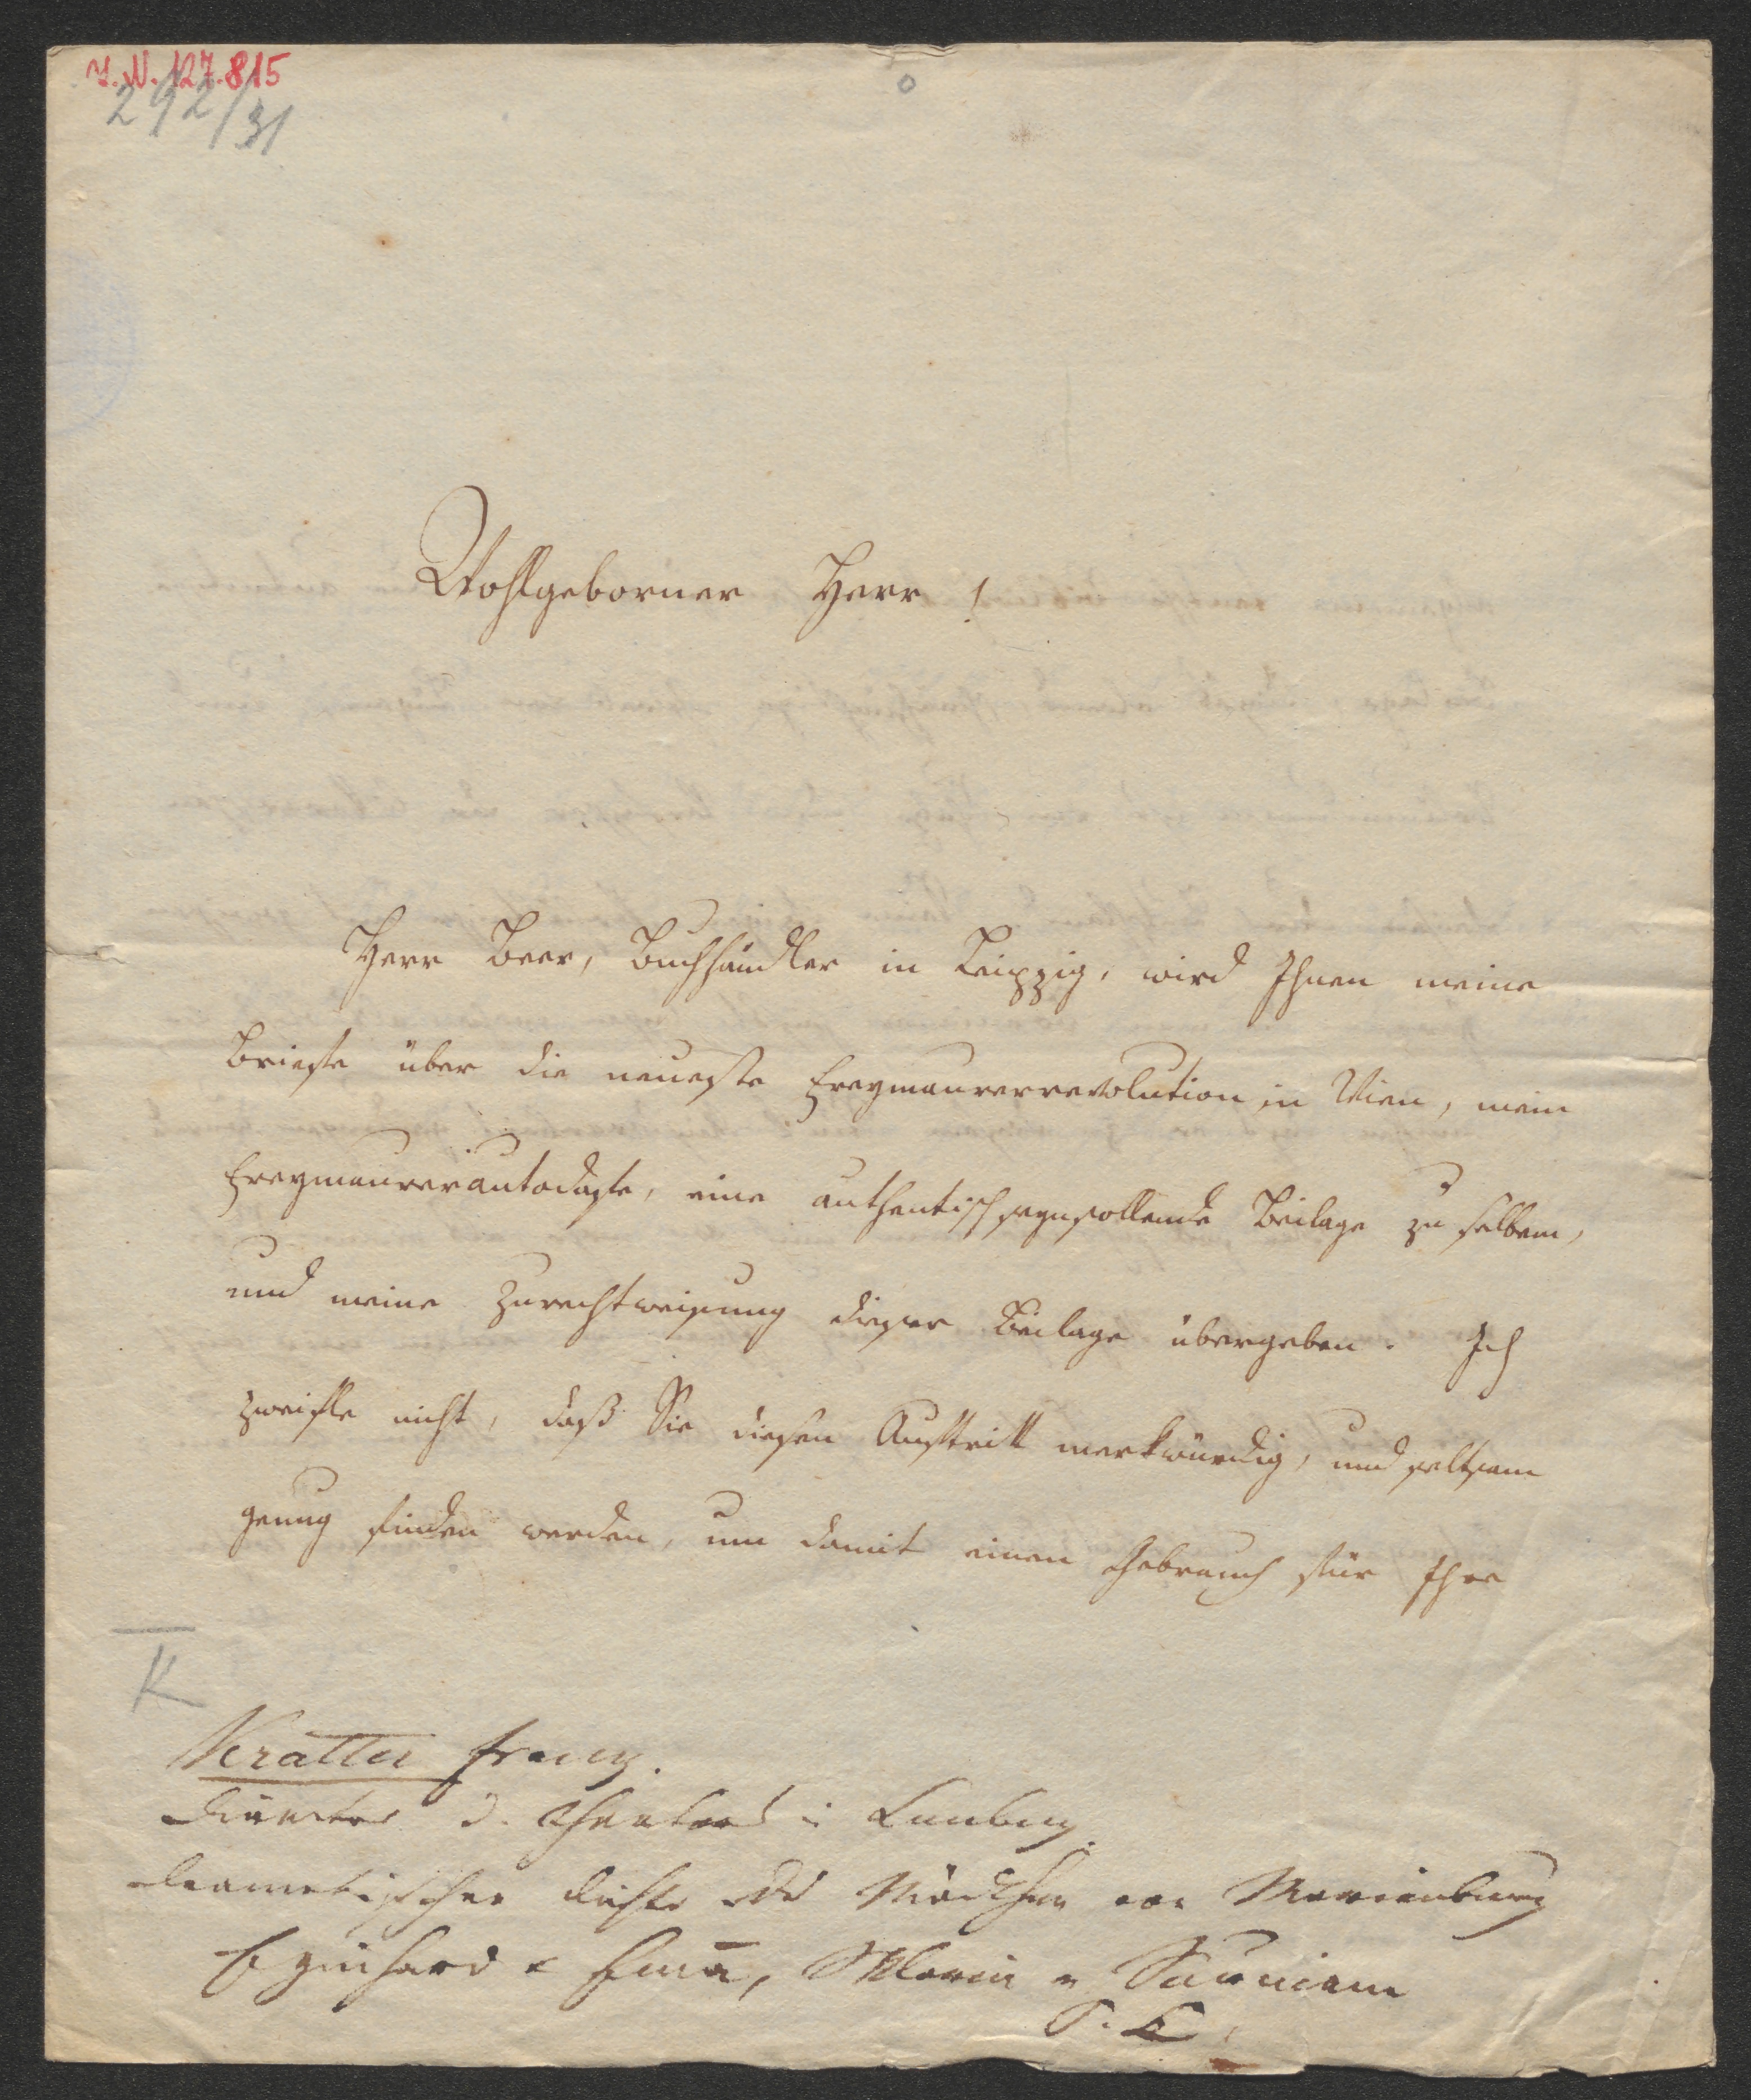 I.N. 127.815
292/31
Wohlgeborner Herr!
Herr Beer, Buchhändler in Leipzig, wird Ihnen meine
Briefe über die neueste Freymaurerrevolution in Wien, mein
Freymaurerautodafee, eine authentischseynsollende Beilage zu selbem,
und meine Zurechtweisung dieser Beilage übergeben. Ich
zweifle nicht, daß Sie diesen Auftritt merkwürdig, und seltsam
genug finden werden, um damit einen Gebrauch für Ihre
K
Kratter Franz.
Director d. Theaters in Lemberg.
dramatischer Dichter Mädchen von Marienburg
Eginhard u Emma,